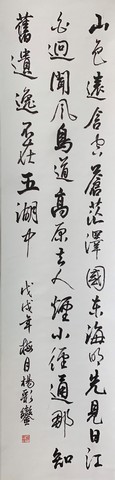 山色遠含空蒼茫澤國東海明先見日江
白迥聞風鳥道高原去人煙小徑通那知
舊遺逸不在五湖中
戊戌年梅月楊彩鑾